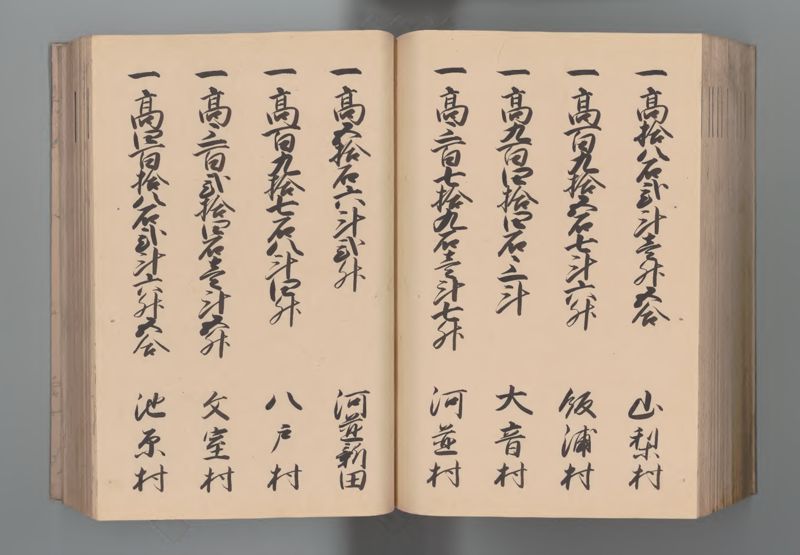 一高拾八石弐斗壱升五合 山梨村
一高百九拾五石七斗六升 飯浦村
一高九百四拾四石三斗 大音村
一高三百七拾九石壱斗七升 河並村
一高五拾石六斗弐升 河並新田
一高百九拾七石八斗四升 八戸村
一高三百弐拾四石壱斗五升 文室村
一高四百拾八石弐斗六升五合 池原村